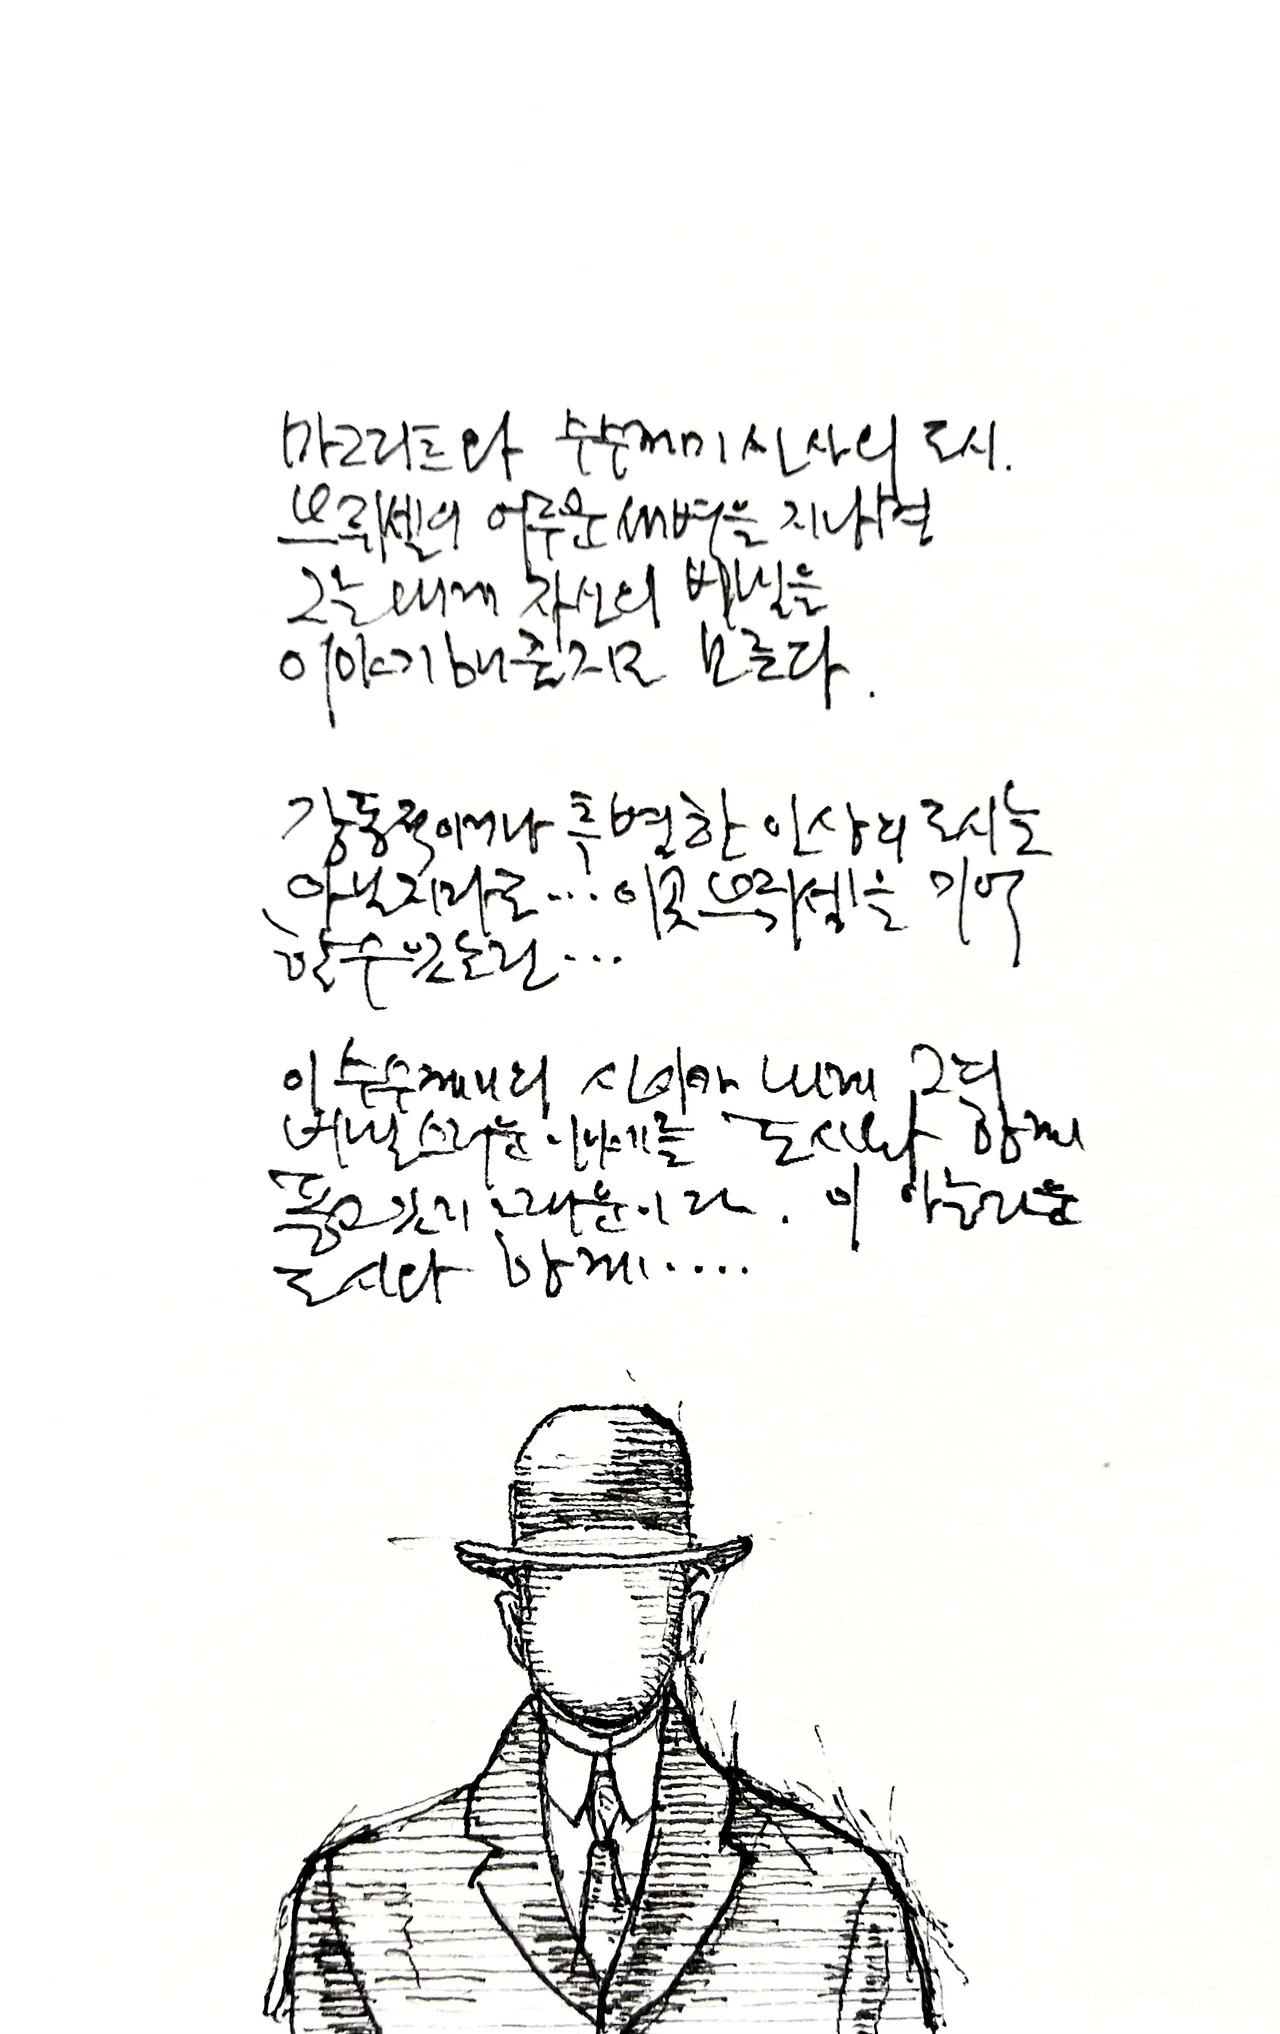 마그리트와 수수께끼 신사의 도시.
브뤼셀의 어두운 새벽을 지나면
그는 내게 자신의 비밀을
이야기해줄지도 모른다.
감동적이거나 특별한 인상의 도시는
아닐지라도... 이곳 브뤼셀을 기억
할 수 있는 건...
이 수수께끼의 신사가 내게 그의
비밀스러운 이야기를 도시와 함께
품고 있기 때문이다. 이 아름다운
도시와 함께....